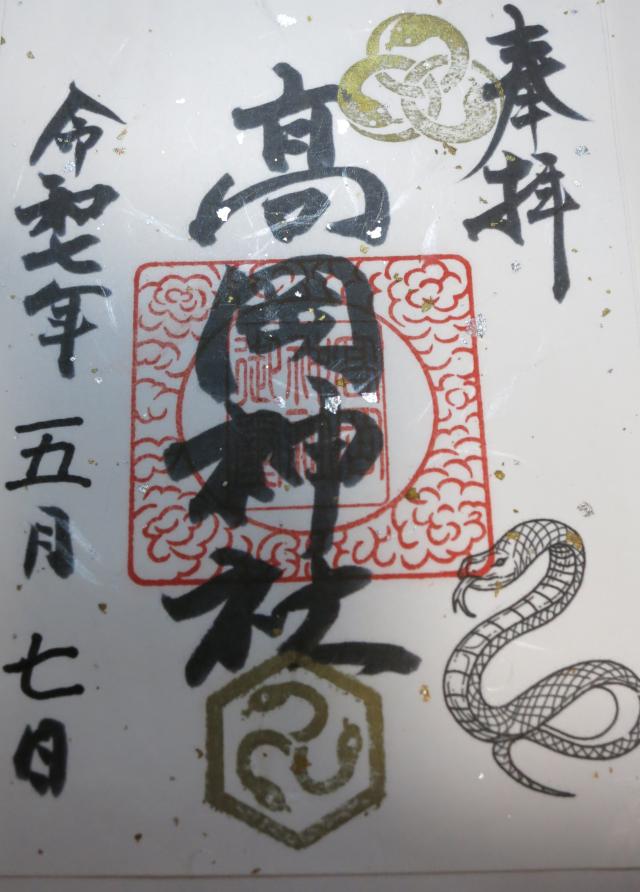 奉拝
高岡神社
令和七年 五月 七日